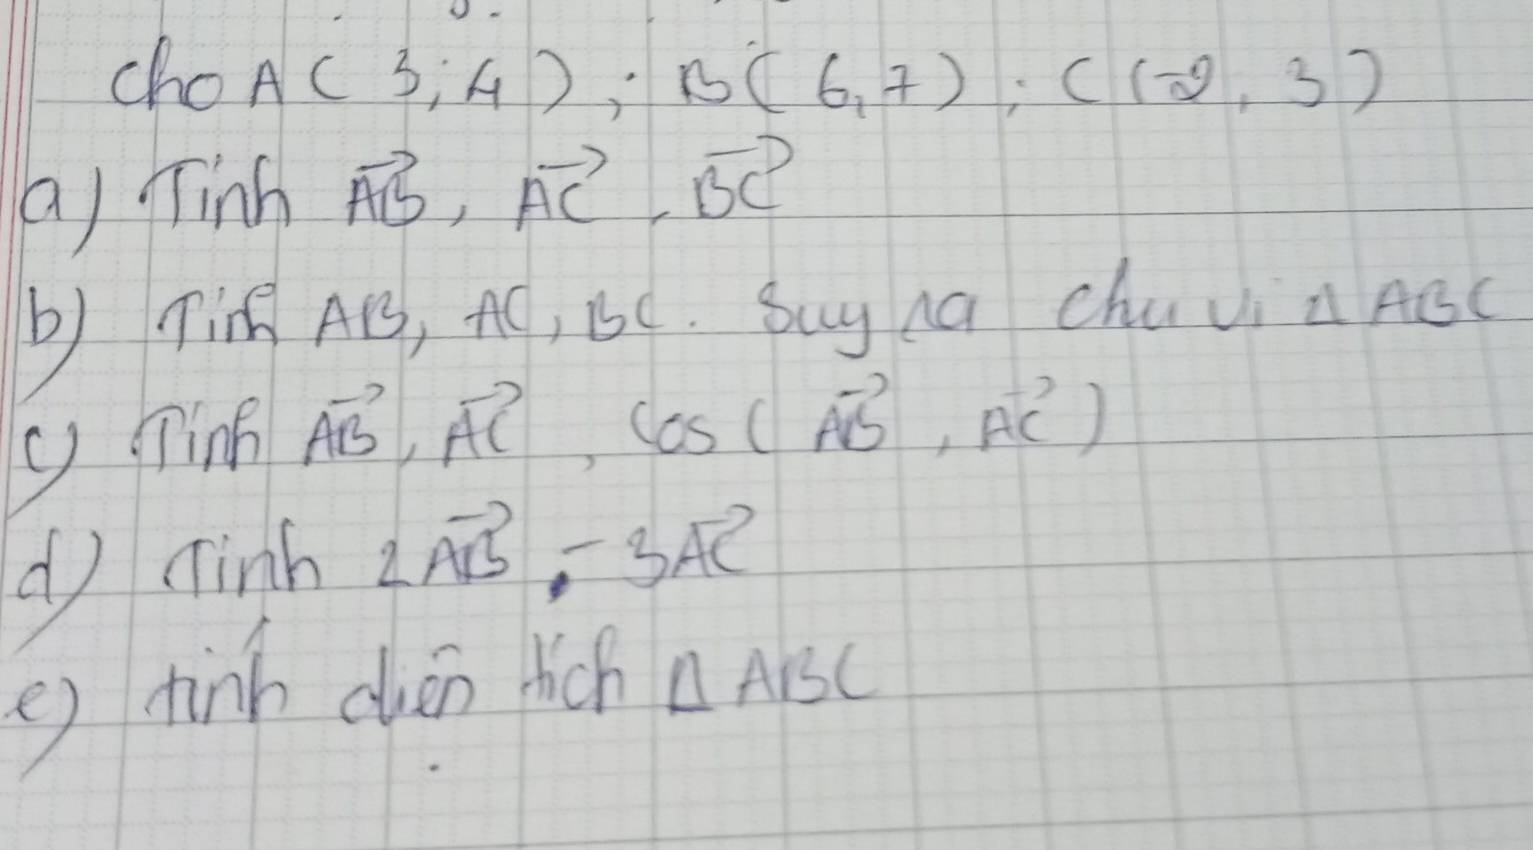 Cho A( 3; 4 ); B( 6, 7 ); C(-2, 3 )
a) Tính \overrightarrow{AB}, \overrightarrow{AC}, \overrightarrow{BC}
b) Tính AB, AC, BC. Suy ra chu vi Δ ABC
c) Tính \overrightarrow{AB}, \overrightarrow{AC}, cos( \overrightarrow{AB}, \overrightarrow{AC} )
d) Tính 2\overrightarrow{AB} - 3\overrightarrow{AC}
e) tính diện tích Δ ABC